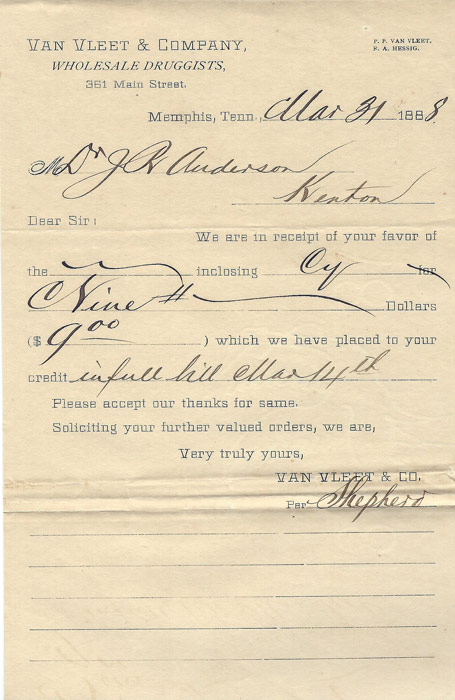 VAN VLEET & COMPANY,
P. P. VAN VLEET.
F. A. HESSIG.
WHOLESALE DRUGGISTS,
351 Main Street.
Memphis, Tenn., Mar 31 1888
M Dr J R Anderson
Kenton
Dear Sir:
We are in receipt of your favor of
the inclosing Cy for
Nine Dollars
($ 9.00 ) which we have placed to your
credit in full bill Mar 14th
Please accept our thanks for same.
Soliciting your further valued orders, we are,
Very truly yours,
VAN VLEET & CO.
Per Shepherd